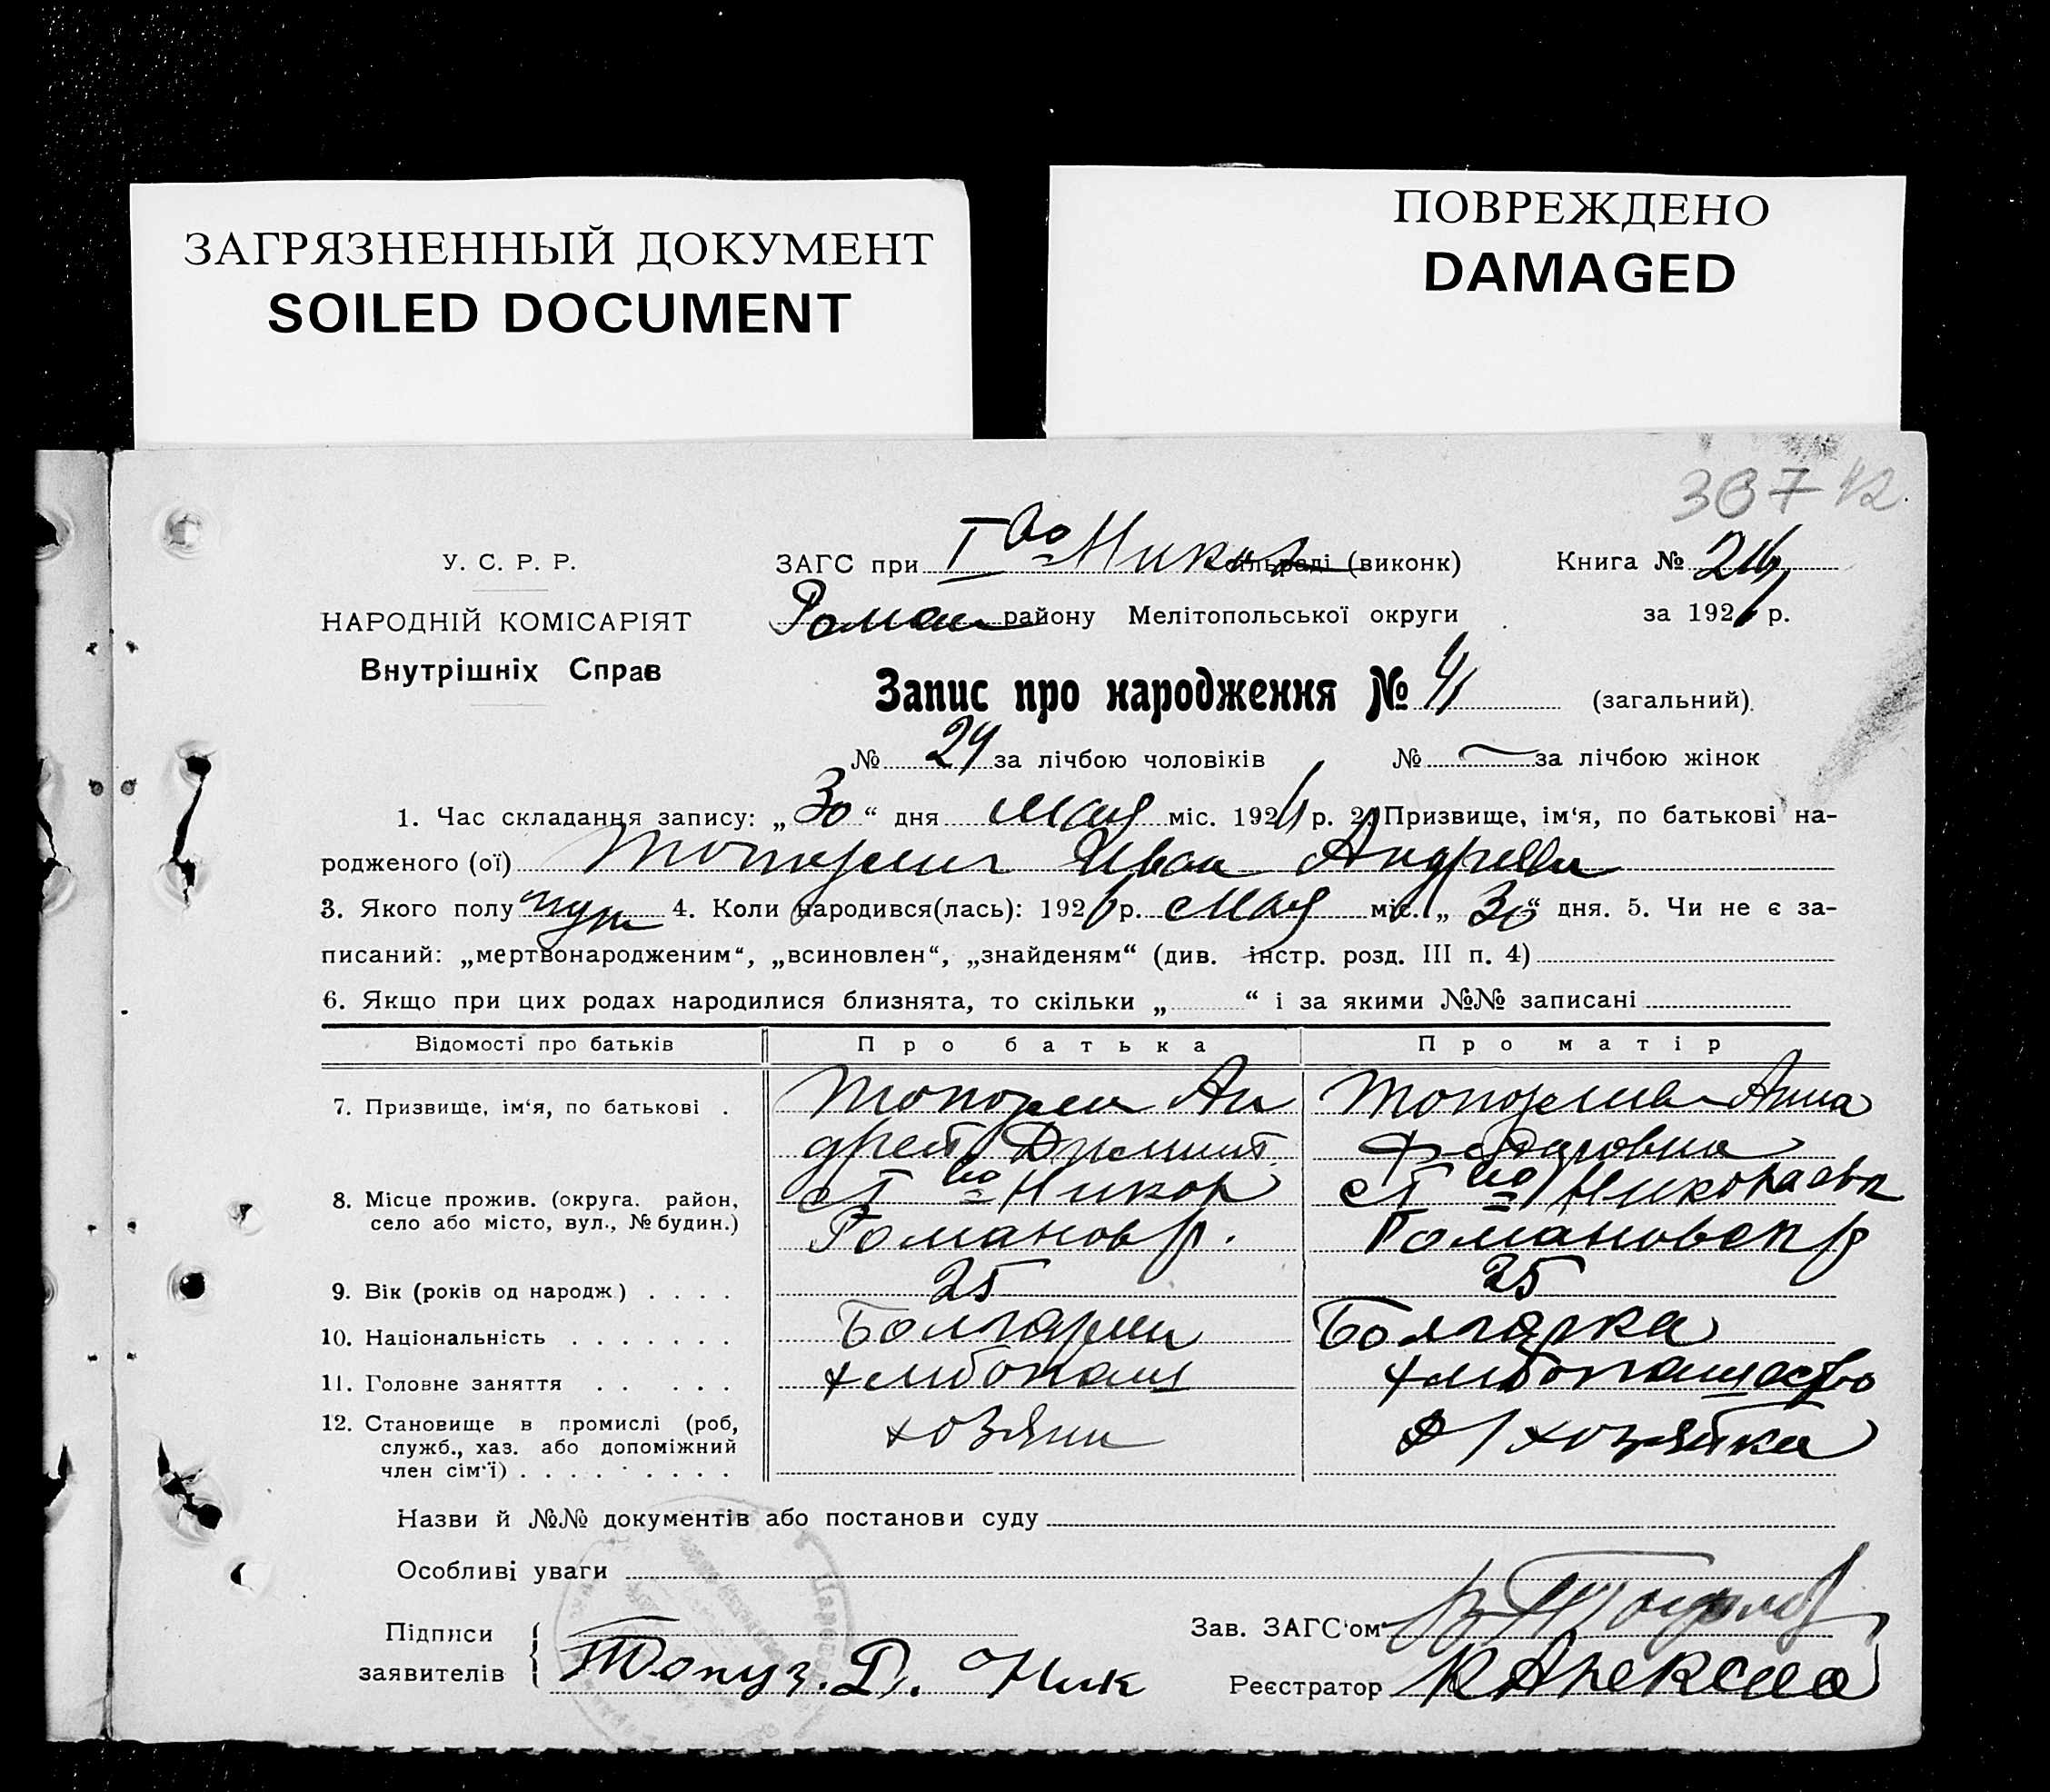 ЗАГРЯЗНЕННЫЙ ДОКУМЕНТ
SOILED DOCUMENT
ПОВРЕЖДЕНО
DAMAGED
У. С. Р. Р.
НАРОДНІЙ КОМІСАРІЯТ
Внутрішніх Справ
ЗАГС при І во Никол сільраді (виконк)
Книга №
Роман району Мелітопольської округи
за 192 р.
Запис про народження № 41 (загальний).
№ 24 за лічбою чоловіків № — за лічбою жінок
1. Час складання запису: „ 30 “ дня мая міс. 192 р. 2. Призвище, ім‘я, по батькові на-
родженого (ої) Иван Андреев
3. Якого полу муж 4. Коли народився(лась): 192 р. мая міс. „ 30 “ дня. 5. Чи не є за-
писаний: „мертвонародженим“, „всиновлен“, „знайденям“ (див. інстр. розд. III п. 4)
6. Якщо при цих родах народилися близнята, то скільки „ “ і за якими №№ записані
Відомості про батьків
Про батька
Про матір
7. Призвище, ім‘я, по батькові .
Ан
дрей Дмит.
Анна
Федоровна
8. Місце прожив. (округа. район,
село або місто, вул., № будин.)
с І во Никол
Романов р.
с І во Николаевк
Романовск р
9. Вік (років од народж) . . . .
25
25
10. Національність . . . . . . .
Болгарин
Болгарка
11. Головне заняття . . . . . .
хлибопаш
хлибопашество
12. Становище в промислі (роб,
служб., хаз. або допоміжний
член сім‘ї) . . . . . . . . .
хозяин
д/хозяйка
Назви й №№ документів або постанови суду
Особливі уваги
Підписи
заявителів
Топуз. Д. Ник
Зав. ЗАГС‘ом
Реєстратор